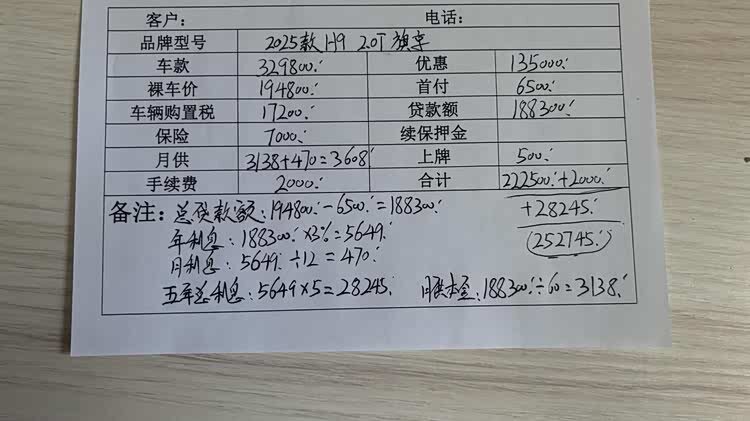 客户： 电话：
品牌型号 2025款H9 2.0T 旗享
车款 329800. 优惠 135000.
裸车价 194800. 首付 6500.
车辆购置税 17200. 贷款额 188300.
保险 7000. 续保押金
月供 3138+470=3608. 上牌 500.
手续费 2000. 合计 222500.+2000.
备注：总贷款额：194800.-6500.=188300. +28245.
年利息：188300.×3%=5649. 252745.
月利息：5649.÷12=470.
五年总利息：5649×5=28245. 月供本金：188300.÷60=3138.